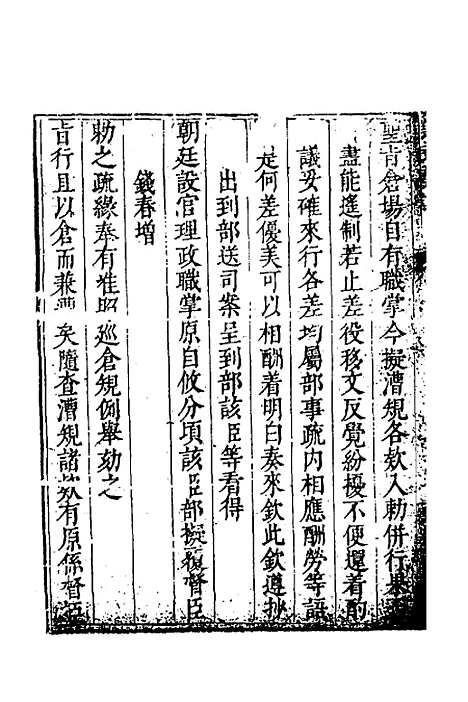 聖旨倉場自有職掌今擬漕規各欵入勅併行果
盡能遙制若止差役移文反覺紛擾不便還着酌
議妥確來行各差均屬部事疏内相應酬勞等語
是何差優美可以相酬着明白奏來欽此欽遵抄
出到部送司案呈到部該臣等看得
朝廷設官理政職掌原自攸分項該臣部擬覆督臣
錢春增
勅之疏緣奉有准照廵倉規例舉劾之
旨行且以倉而兼漕矣隨查漕規諸欵有原係督臣